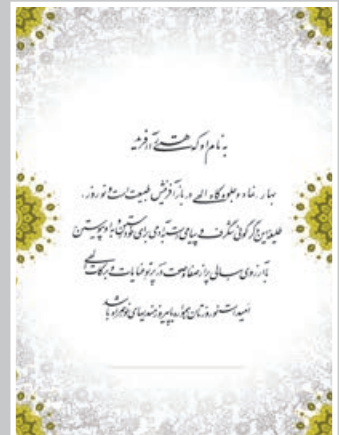 به نام او که هستی آفرید
بهار، نماد و جلوه گاه الهی در باز آفرینش طبیعت است و نوروز،
طلیعه این دگرگونی شگرف و پیامی به آدمی برای نو شدن و به او پیوستن
با آرزوی سالی پر از صفا و صحت در پرتو عنایات و برکات الهی
امید است نوروزتان همواره با پیروزمندیهای نو همراه باشد